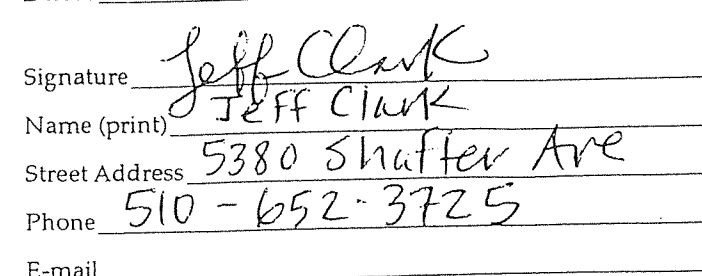 Signature Jeff Clark
Name (print) Jeff Clark
Street Address 5380 Shafter Ave
Phone 510-652-3725
E-mail